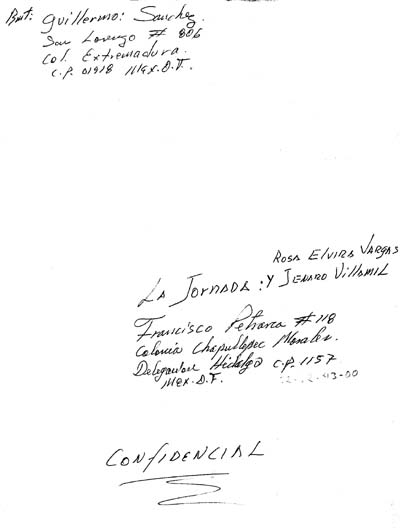 Rmt: Guillermo: Sanchez.
San Lorenzo # 806
Col. Extremadura.
C.P. 01918 Mex. D.F.
Rosa Elvira Vargas
La Jornada: Y Jenaro Villamil
Francisco Petrarca # 118
Colonia Chapultepec Morales.
Delegacion Hidalgo C.P. 1157
Mex. D.F.
CONFIDENCIAL